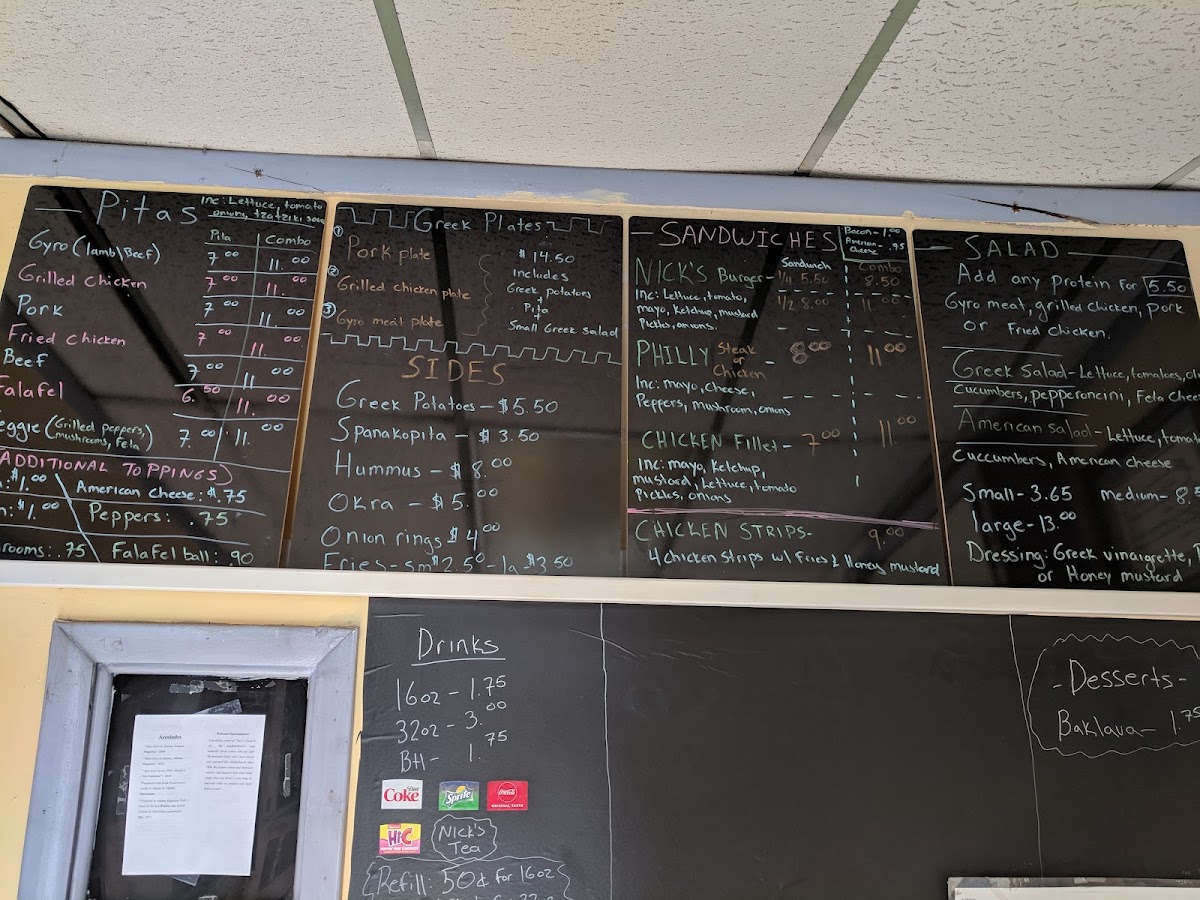 Pitas
Inc: Lettuce, tomato
onion, tzatziki sauce
Pita Combo
Gyro (lamb\Beef) 7.00 11.00
Grilled chicken 7.00 11.00
Pork 7.00 11.00
Fried chicken 7.00 11.00
Beef 7.00 11.00
Falafel 6.50 11.00
eggie (Grilled peppers, mushrooms, feta) 7.00 11.00
ADDITIONAL TOPPINGS)
: $1.00 American cheese: $.75
: $1.00 Peppers: .75
rooms: .75 Falafel ball: .90
Greek Plates
① Pork plate
② Grilled chicken plate
③ Gyro meat plate
$14.50
includes
Greek potatoes
+
Pita
+
Small Greek salad
SIDES
Greek Potatoes - $5.50
Spanakopita - $3.50
Hummus - $8.00
Okra - $5.00
Onion rings $4.00
Fries - sm $2.50 - la $3.50
SANDWICHES
Bacon - 1.00
American - .75
cheese
Sandwich Combo
NICK'S Burger - 1/4 5.50 8.50
1/2 8.00 11.00
Inc: Lettuce, tomato,
mayo, ketchup, mustard
Pickles, onions.
PHILLY Steak or Chicken - 8.00 11.00
Inc: mayo, cheese,
Peppers, mushroom, onions
CHICKEN Fillet - 7.00 11.00
Inc: mayo, ketchup,
mustard, Lettuce, tomato
Pickles, onions
CHICKEN STRIPS - 9.00
4 chicken strips w/ fries & Honey mustard
SALAD
Add any protein for 5.50
Gyro meat, grilled chicken, pork
or Fried chicken.
Greek Salad - Lettuce, tomatoes, ol
Cucumbers, pepperoncini, Feta chees
American Salad - Lettuce, tomato
Cuccumbers, American cheese
Small - 3.65 medium - 8.
large - 13.00
Dressing: Greek vinaigrette,
or Honey mustard
Drinks
16oz - 1.75
32oz - 3.00
Btl - 1.75
Diet Coke
Sprite
Coca-Cola
ORIGINAL TASTE
HiC
NICK'S
Tea
Refill: 50¢ for 16oz
- Desserts -
Baklava - 1.75
Accolades